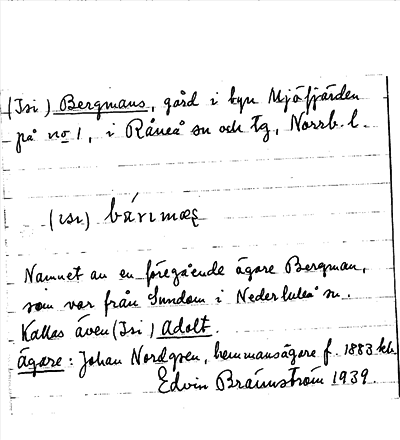 (Isi) Bergmans, gård i byn Mjöfjärden
på no 1, i Råneå sn och tg, Norrb. l.
(ısı)
Namnet av en föregående ägare Bergman,
som var från Sundom i Nederluleå sn.
Kallas även (Isi) Adolt.
Ägare: Johan Nordgren, hemmansägare f. 1883
Edvin Brännström 1939.